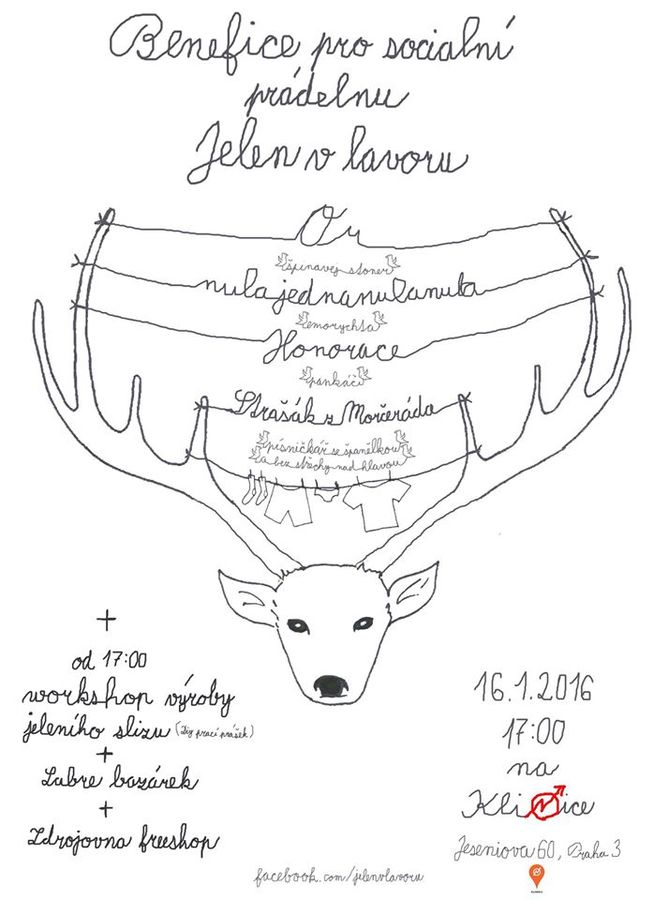 Benefice pro socialní
prádelnu
Jelen v lavoru
Or
špinavej stoner
nulajednanulanula
emorychta
Honorace
pankáči
Strašák z Mořeráda
písničkář se španělkou
a bez střechy nad hlavou
+
od 17:00
workshop výroby
jeleního slizu (diy prací prášek)
+
Lubre bazárek
+
Zdrojovna freeshop
16.1.2016
17:00
na
Klinice
Jeseniova 60, Praha 3
facebook.com/jelenvlavoru